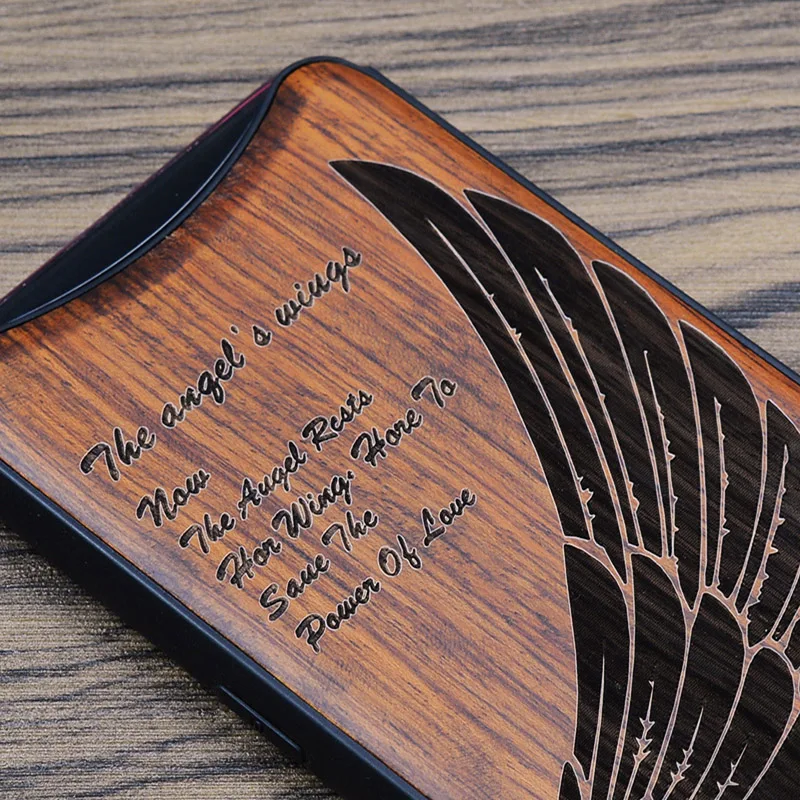 The angel's wings
Now
The Angel Rests
Her Wing, Here To
Save The
Power Of Love